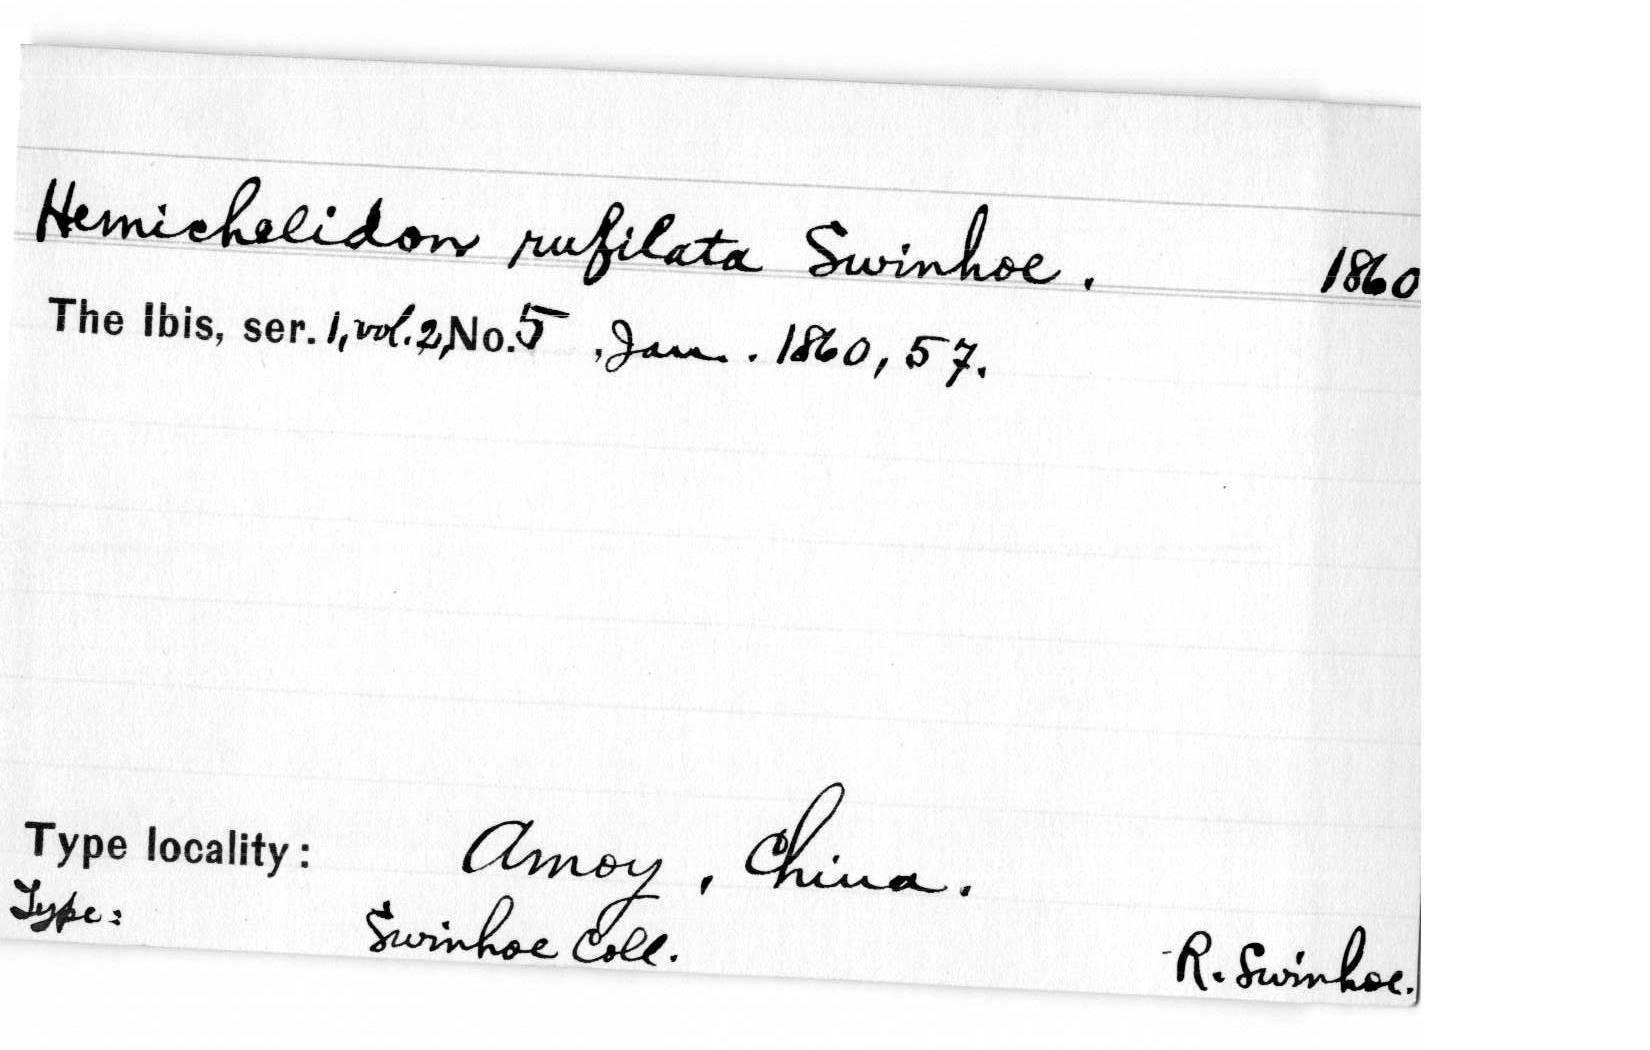 Hemichelidon rufilata Swinhoe. 1860
The Ibis, ser. 1, vol. 2, No. 5, Jan. 1860, 57.
Type locality: Amoy, China.
Type: Swinhoe Coll. R. Swinhoe.